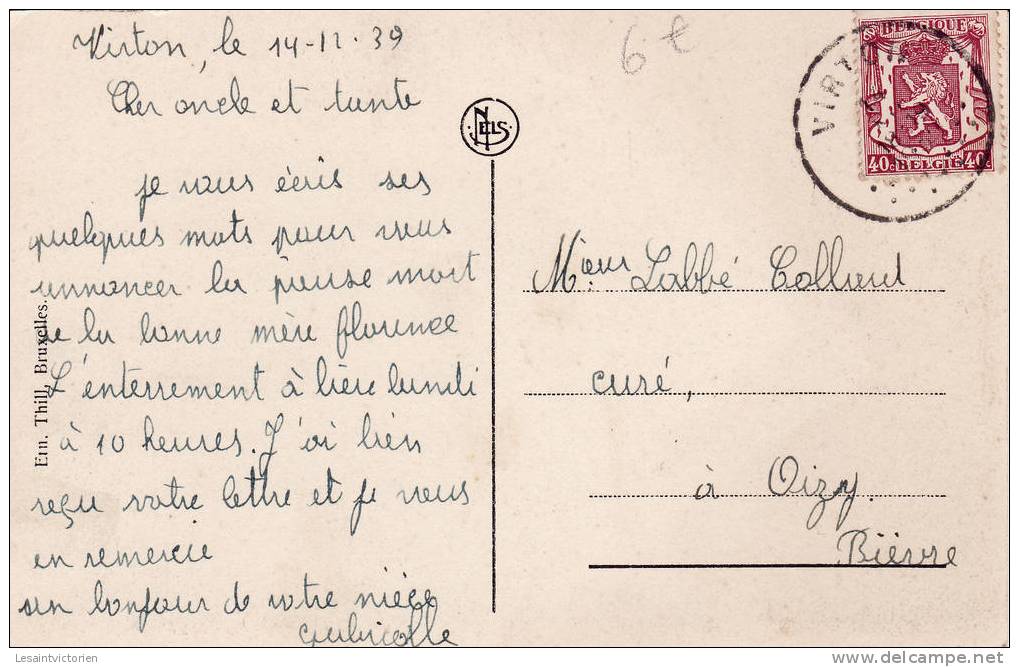 Virton, le 14-12-39
6 €
Cher oncle et tante
NELS
je vous écris ses
quelques mots pour vous
annoncer la pieuse mort
de la bonne mère florence
L'enterrement à lieu lundi
à 10 heures. J'ai bien
reçu votre lettre et je vous
en remercie
un bonjour de votre nièce
BELGIQUE
40c BELGIE 40c
VIRTO
Mieur Labbé Collard
curé,
à Oizy.
Bièvre
Ern. Thill, Bruxelles.
Lesaintvictorien
delcampe.net